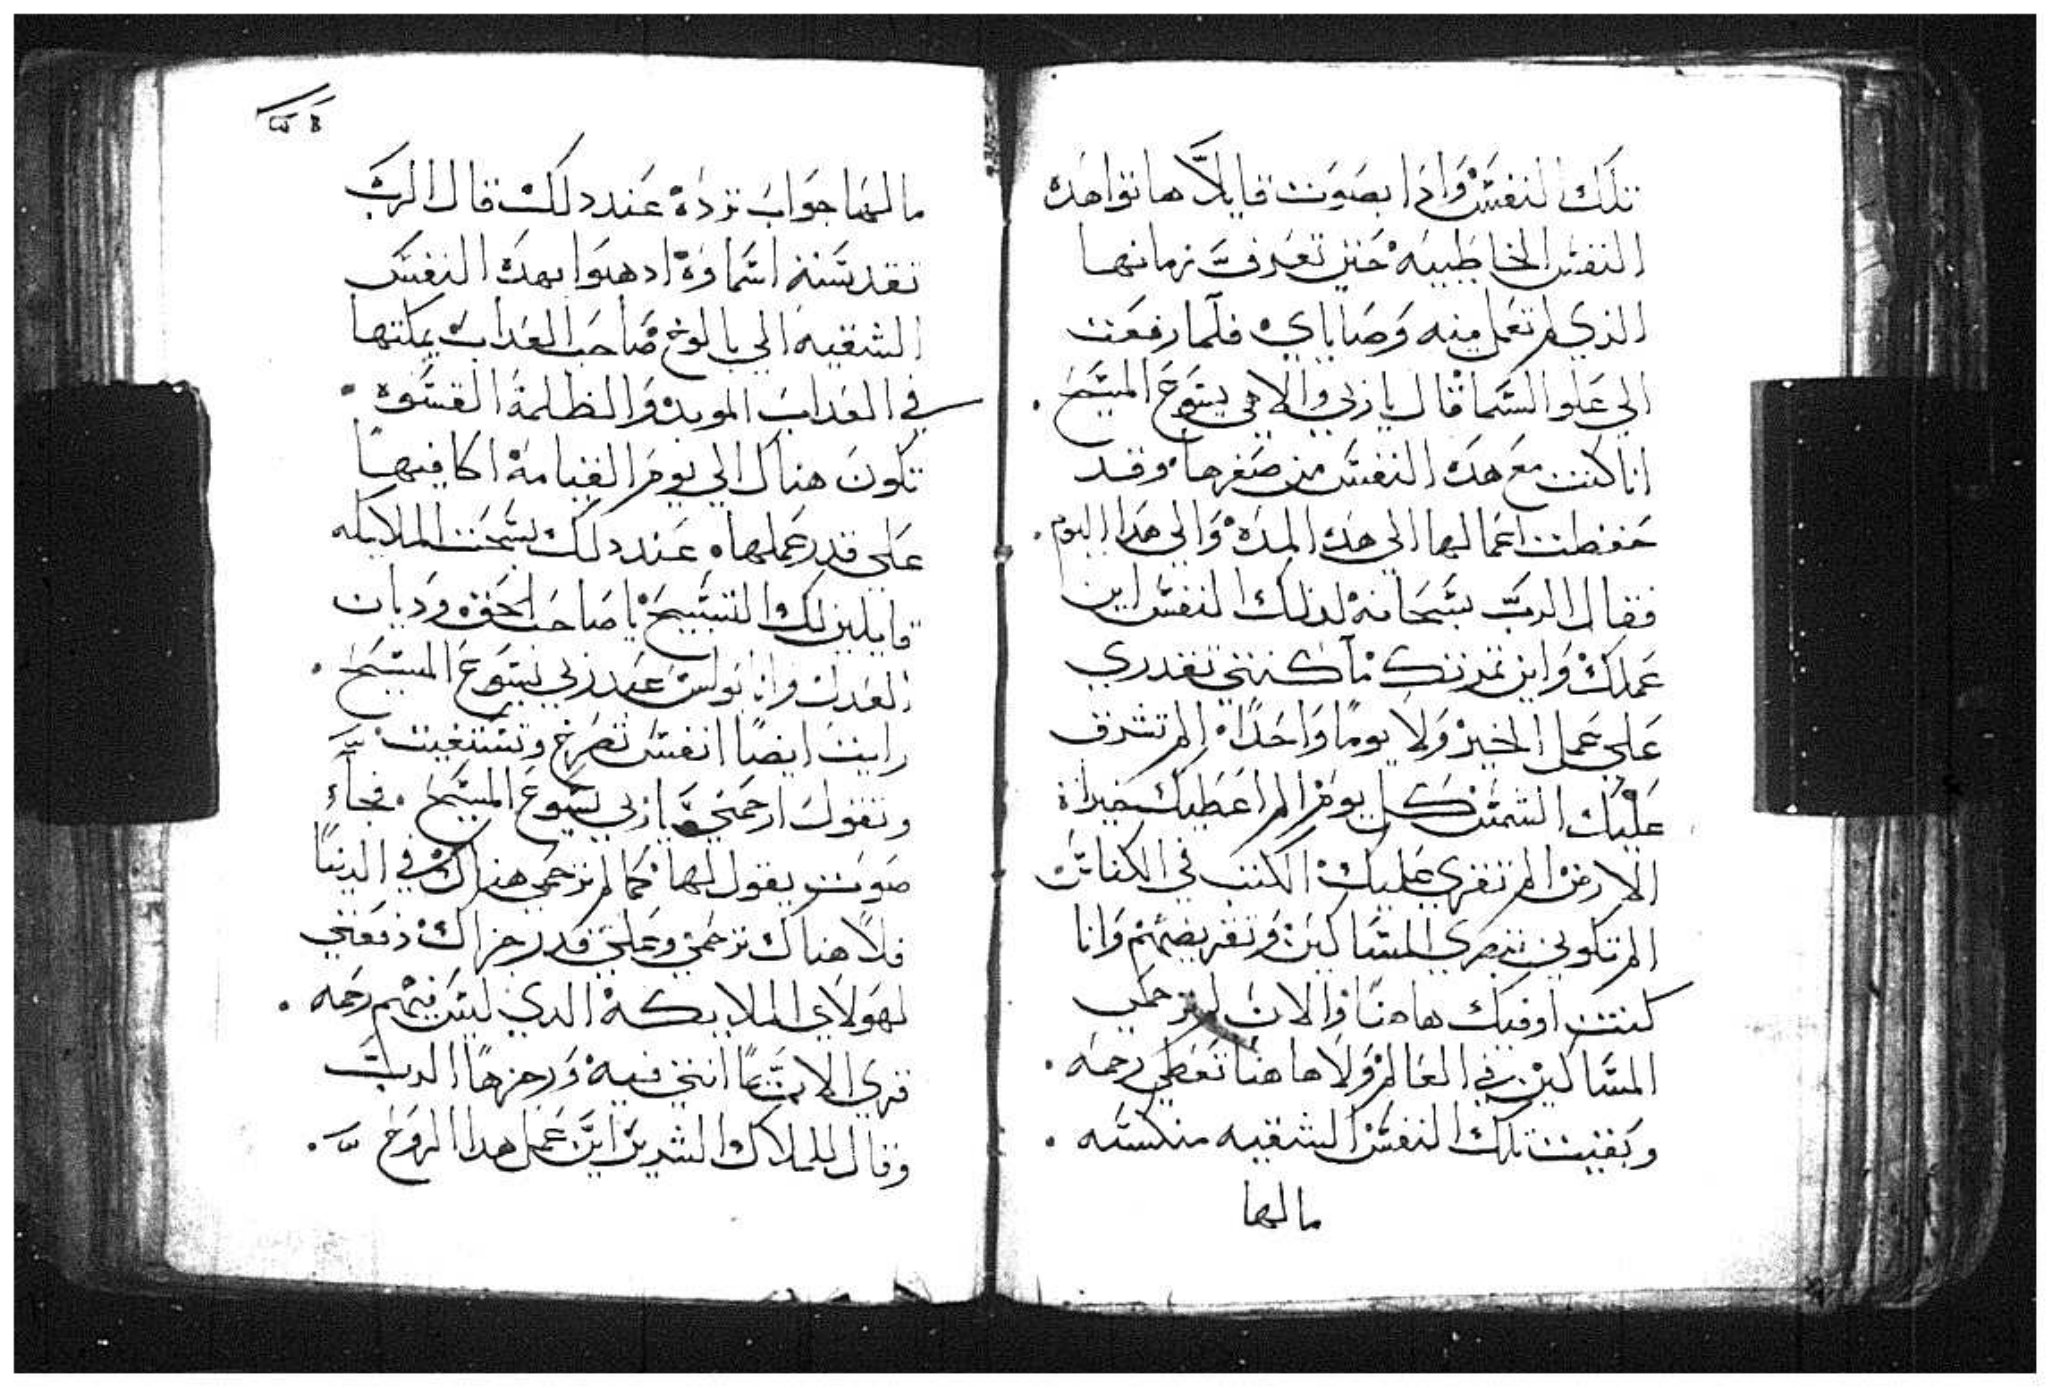 تلك النفس وادا بصوت قايلا هاتوا هده
النفس الخاطييه حتي تعرف زمانها
الذي لم تعمل فيه وصاياي فلما رفعت
الي علو السما قال يا ربي والاهي يسوع المسيح .
انا كنت مع هده النفس من صغرها وقد
حفظت اعمالها الي هده المده والي هدا اليوم .
فقال الرب سبحانه لذلك النفس اين
عملك واين تمرتك ما كنتي تقدري
علي عمل الخير ولا يوما واحدا الم تشرق
عليك الشمس كل يوم الم اعطيك خيراة
الارض الم تقري عليك الكتب في الكنايس
الم تكوني تنصري المساكين وانا
كنت اوفيك هاهنا والان لم ترحمي
المساكين في العالم ولا هاهنا تعطي رحمه .
وبقيت تلك النفس الشقيه منكسه .
مالها
مالها جواب ترده عند دلك قال الرب
تقدست اسماوه ادهبوا بهده النفس
الشقيه الي يالوخ صاحب العداب يمكتها
في العداب الموبد والظلمة القسوه .
تكون هناك الي يوم القيامه اكافيها
علي قدر عملها . عند دلك سبحت الملايكه
قايلين لك التسبيح يا صاحب الحق وديان
العدل وانا بولس عبد ربي يسوع المسيح .
رايت ايضا انفس تصرخ وتستغيت
وتقول ارحمني يا ربي يسوع المسيح . فجاء
صوت يقول لها كما لم ترحمي هناك في الدنيا
فلا هناك ترحمي وعلي قدر جزاك دفعتي
لهولاي الملايكة الدي ليس فيهم رحمه .
فري الاتما انتي فيه وزجرها الرب
وقال للملاك الشرير اين عمل هدا الروح .